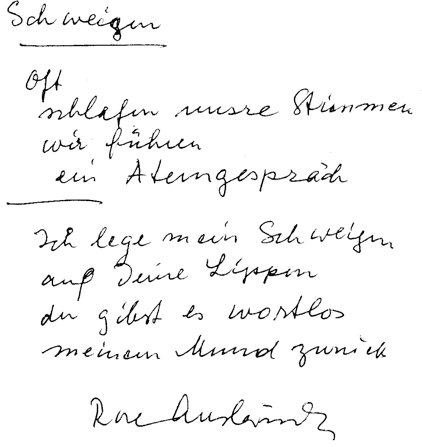 Schweigen
Oft
schlafen unsre Stimmen
wir führen
ein Atemgespräch
Ich lege mein Schweigen
auf Deine Lippen
du gibst es wortlos
meinem Mund zurück
Rose Ausländer